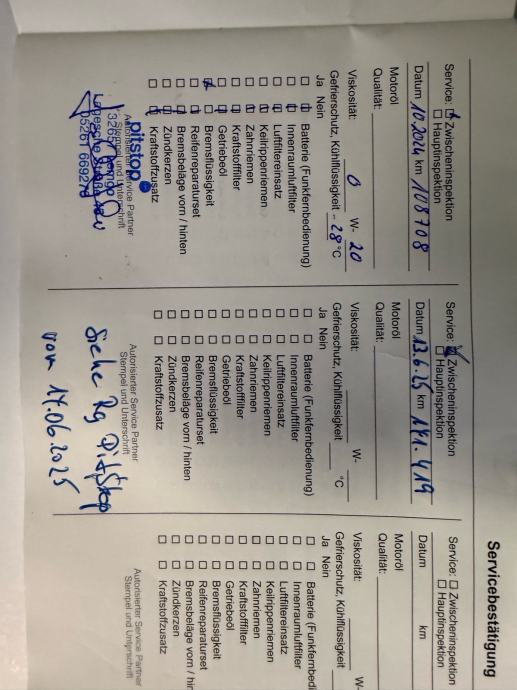 Servicebestätigung
Service: ☒ Zwischeninspektion
☐ Hauptinspektion
Datum 10.2024 km 108708
Motoröl
Qualität:
Viskosität: 0 W- 20
Gefrierschutz, Kühlflüssigkeit - 28 °C
Ja Nein
Batterie (Funkfernbedienung)
Innenraumluftfilter
Luftfiltereinsatz
Keilrippenriemen
Zahnriemen
Kraftstofffilter
Getriebeöl
Bremsflüssigkeit
Reifenreparaturset
Bremsbeläge vorn / hinten
Zündkerzen
Kraftstoffzusatz
pitstop
Autorisierter Service Partner
Stempel und Unterschrift
Service: ☒ Zwischeninspektion
☐ Hauptinspektion
Datum 13.6.25 km 141.419
Motoröl
Qualität:
Viskosität: W-
Gefrierschutz, Kühlflüssigkeit °C
Ja Nein
Batterie (Funkfernbedienung)
Innenraumluftfilter
Luftfiltereinsatz
Keilrippenriemen
Zahnriemen
Kraftstofffilter
Getriebeöl
Bremsflüssigkeit
Reifenreparaturset
Bremsbeläge vorn / hinten
Zündkerzen
Kraftstoffzusatz
Autorisierter Service Partner
Stempel und Unterschrift
siehe Rg PitStop
vom 17.06.2025
Service: ☐ Zwischeninspektion
☐ Hauptinspektion
Datum km
Motoröl
Qualität:
Viskosität: W-
Gefrierschutz, Kühlflüssigkeit
Ja Nein
Batterie (Funkfernbedi
Innenraumluftfilter
Luftfiltereinsatz
Keilrippenriemen
Zahnriemen
Kraftstofffilter
Getriebeöl
Bremsflüssigkeit
Reifenreparaturset
Bremsbeläge vorn / hin
Zündkerzen
Kraftstoffzusatz
Autorisierter Service Partner
Stempel und Unterschrift